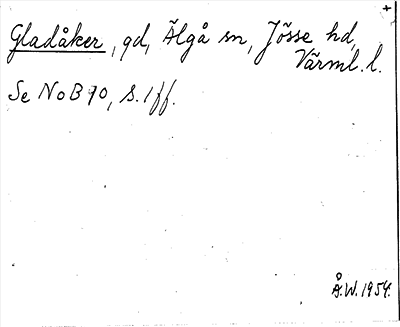 +
Gladåker, gd, Älgå sn, Jösse hd,
Värml. l.
Se NoB 90, s. 1 ff.
Å.W. 1954.